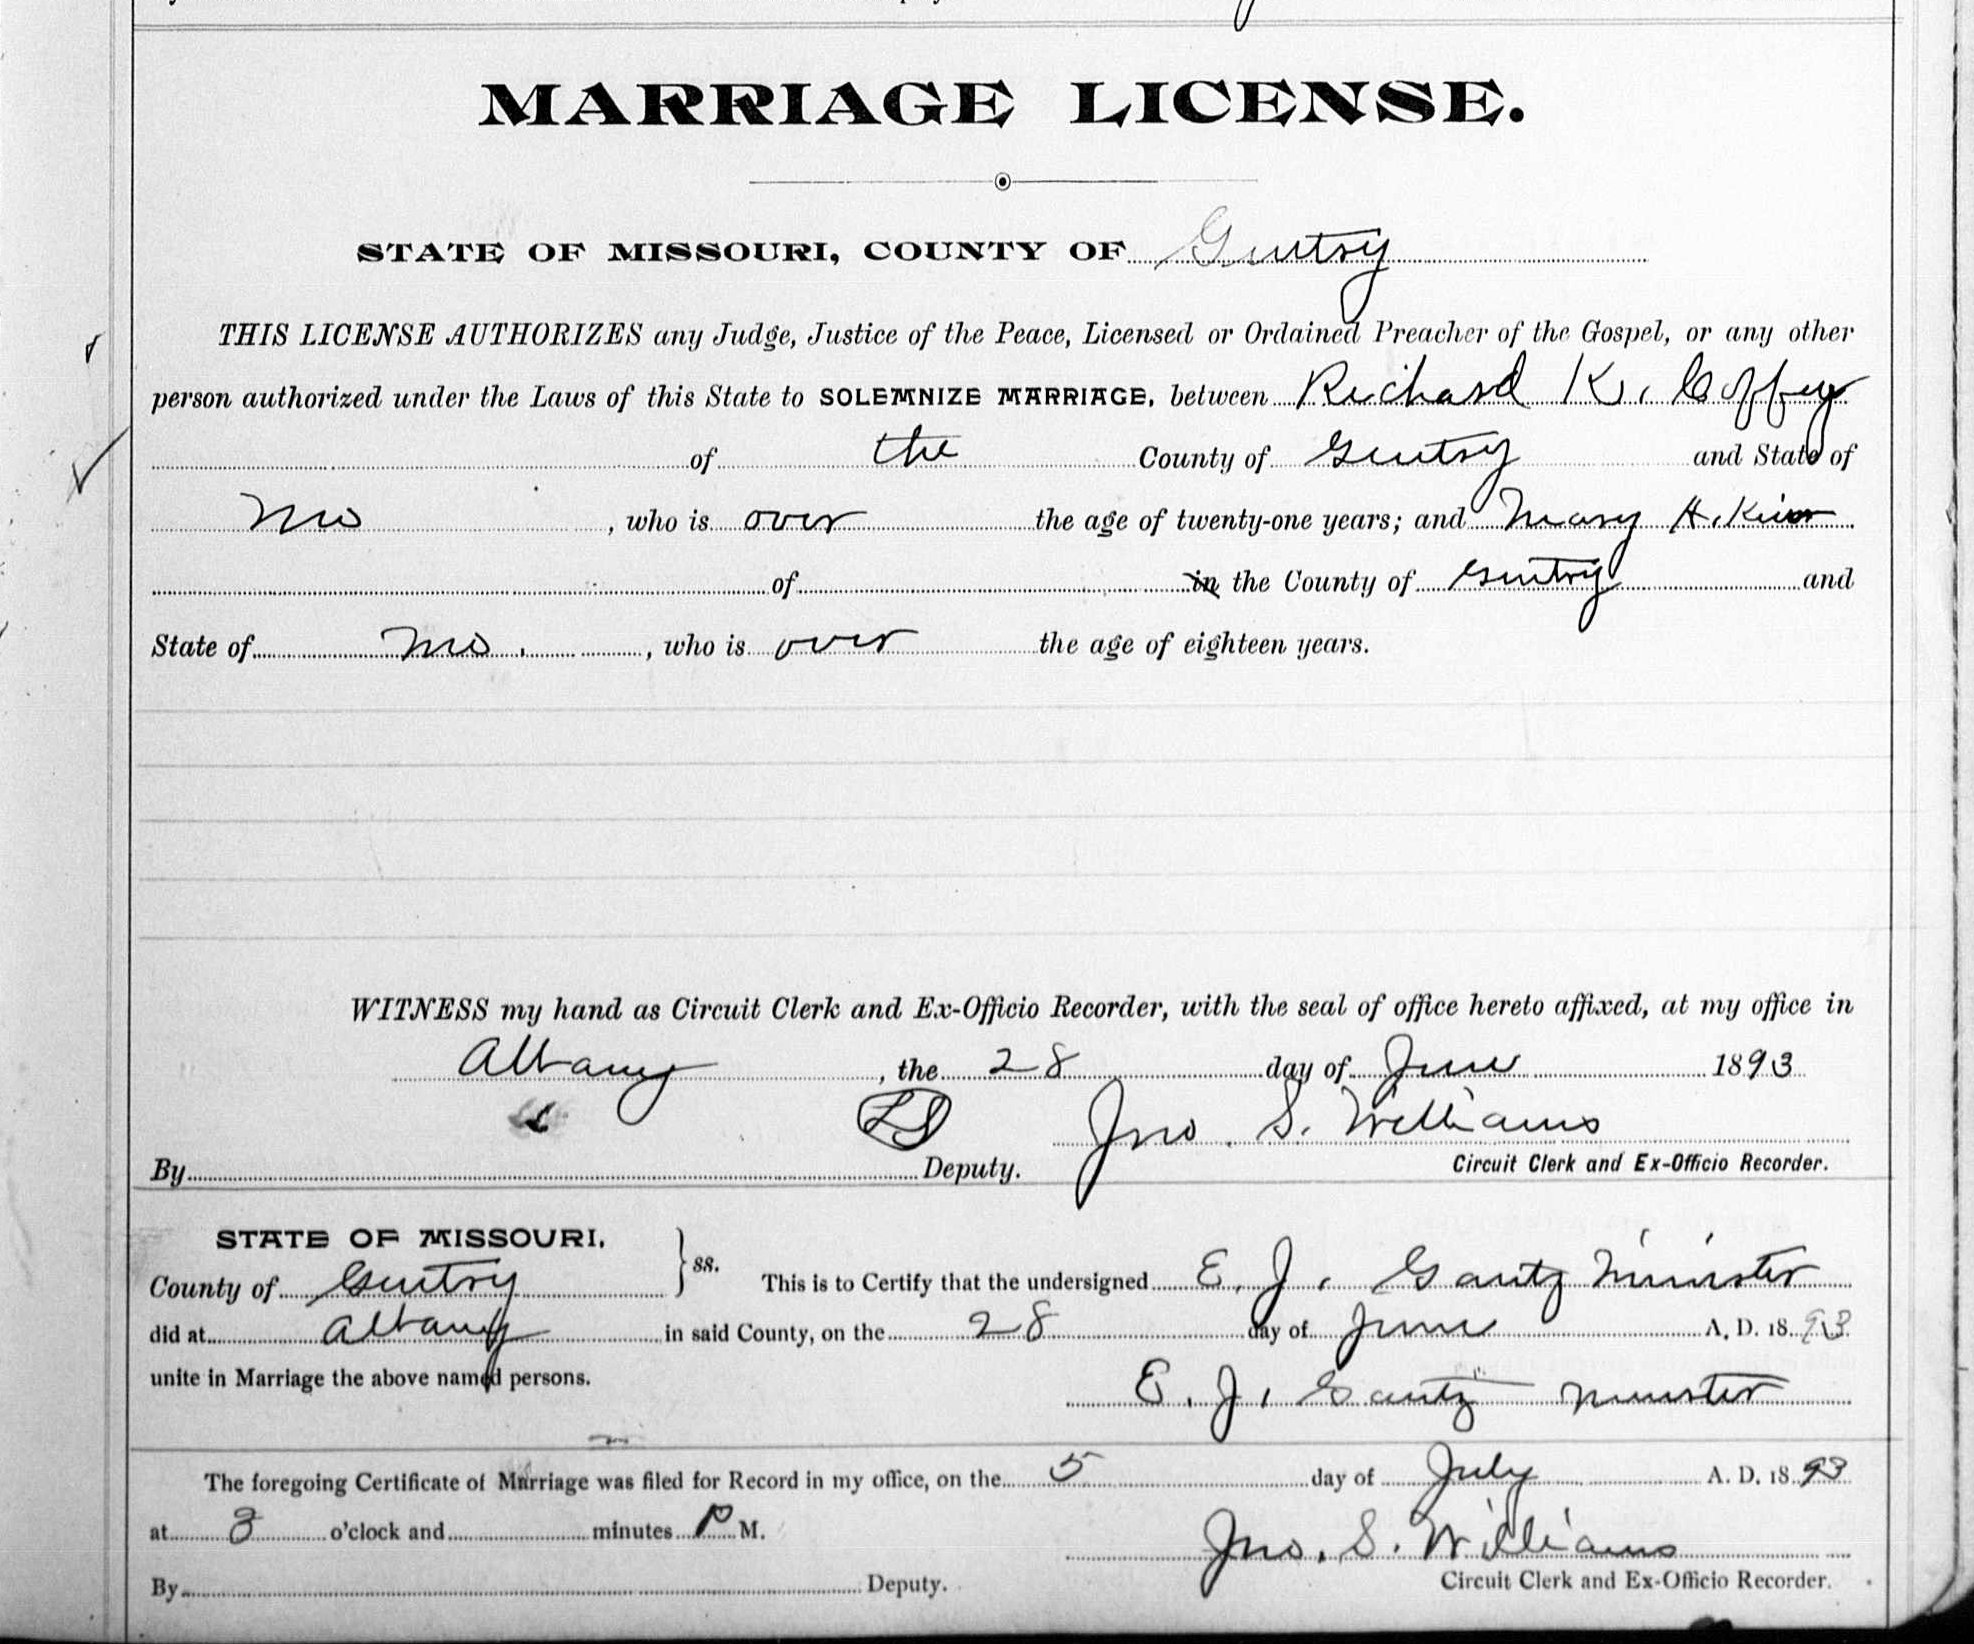 MARRIAGE LICENSE.
STATE OF MISSOURI, COUNTY OF Gentry
THIS LICENSE AUTHORIZES any Judge, Justice of the Peace, Licensed or Ordained Preacher of the Gospel, or any other
person authorized under the Laws of this State to SOLEMNIZE MARRIAGE, between Richard K. Coffey
of the County of Gentry and State of
Mo, who is over the age of twenty-one years; and Mary A.
of in the County of Gentry and
State of Mo., who is over the age of eighteen years.
WITNESS my hand as Circuit Clerk and Ex-Officio Recorder, with the seal of office hereto affixed, at my office in
Albany, the 28 day of June 1893
LS Jno. S. Williams
By Deputy. Circuit Clerk and Ex-Officio Recorder.
STATE OF MISSOURI,
County of Gentry } ss. This is to Certify that the undersigned E. J. Gantz Minister
did at Albany in said County, on the 28 day of June A. D. 1893
unite in Marriage the above named persons.
E. J. Gantz Minister
The foregoing Certificate of Marriage was filed for Record in my office, on the 5 day of July A. D. 1893
at 3 o'clock and minutes P M.
Jno. S. Williams
By Deputy. Circuit Clerk and Ex-Officio Recorder.